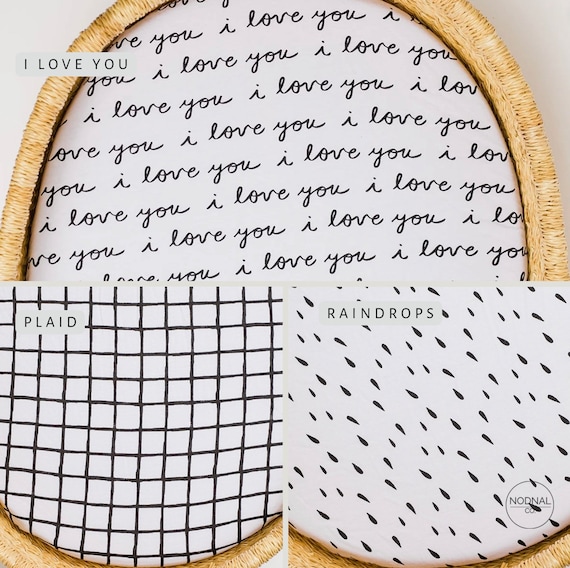 love you i love you i love you
I LOVE YOU
you i love you i love you i love you
i love you i love you i love you i
love you i love you i love you i lo
ove you i love you i love you i lov
you i love you i love you i love
i love you i love you i love you i lo
ve you i love you i love you i lov
i love you i love you
PLAID
RAINDROPS
NODNAL
CO